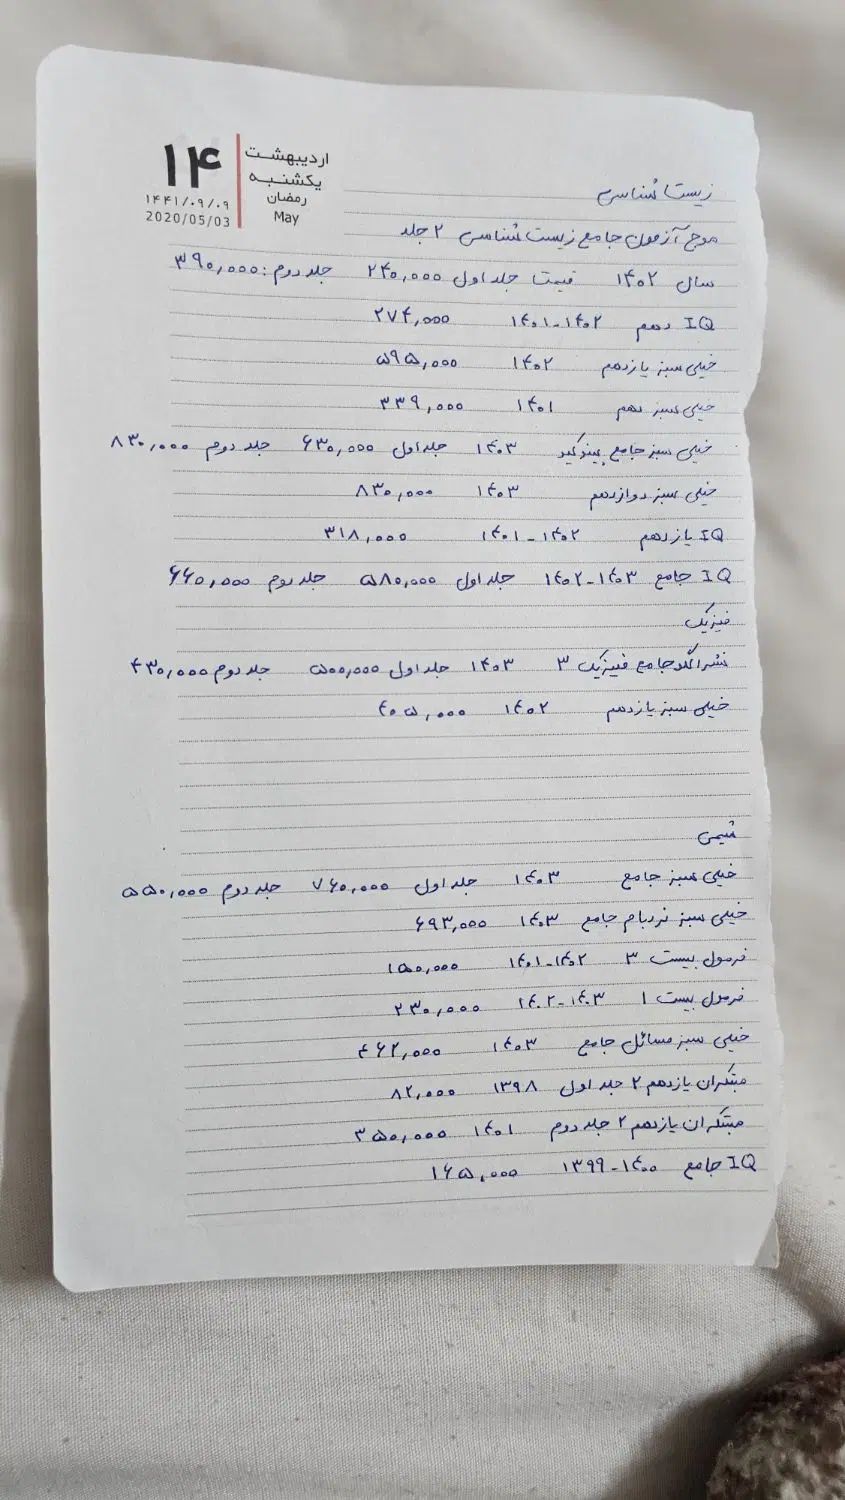 ۱۴
اردیبهشت
یکشنبه
رمضان
۱۴۴۱/۰۹/۰۹
May
2020/05/03
زیست شناسی
موج آزمون جامع زیست شناسی ۲ جلد
سال ۱۴۰۲ قیمت جلد اول ۲۴۰,۰۰۰ جلد دوم: ۳۹۰,۰۰۰
IQ دهم ۱۴۰۱-۱۴۰۲ ۲۷۴,۰۰۰
خیلی سبز یازدهم ۱۴۰۲ ۵۹۵,۰۰۰
خیلی سبز دهم ۱۴۰۱ ۳۳۹,۰۰۰
خیلی سبز جامع ۱۴۰۳ جلد اول ۶۳۰,۰۰۰ جلد دوم ۸۳۰,۰۰۰
خیلی سبز دوازدهم ۱۴۰۳ ۸۳۰,۰۰۰
IQ یازدهم ۱۴۰۱-۱۴۰۲ ۳۱۸,۰۰۰
IQ جامع ۱۴۰۲-۱۴۰۳ جلد اول ۵۸۰,۰۰۰ جلد دوم ۶۶۰,۰۰۰
فیزیک
نشر الگو جامع فیزیک ۳ ۱۴۰۳ جلد اول ۵۰۰,۰۰۰ جلد دوم ۴۳۰,۰۰۰
خیلی سبز یازدهم ۱۴۰۲ ۴۰۵,۰۰۰
شیمی
خیلی سبز جامع ۱۴۰۳ جلد اول ۷۶۰,۰۰۰ جلد دوم ۵۵۰,۰۰۰
خیلی سبز نردبام جامع ۱۴۰۳ ۶۹۳,۰۰۰
فرمول بیست ۳ ۱۴۰۱-۱۴۰۲ ۱۵۰,۰۰۰
فرمول بیست ۱ ۱۴۰۲-۱۴۰۳ ۲۳۰,۰۰۰
خیلی سبز مسائل جامع ۱۴۰۳ ۴۶۲,۰۰۰
مبتکران یازدهم ۲ جلد اول ۱۳۹۸ ۸۲,۰۰۰
مبتکران یازدهم ۲ جلد دوم ۱۴۰۱ ۳۵۰,۰۰۰
IQ جامع ۱۳۹۹-۱۴۰۰ ۱۶۵,۰۰۰